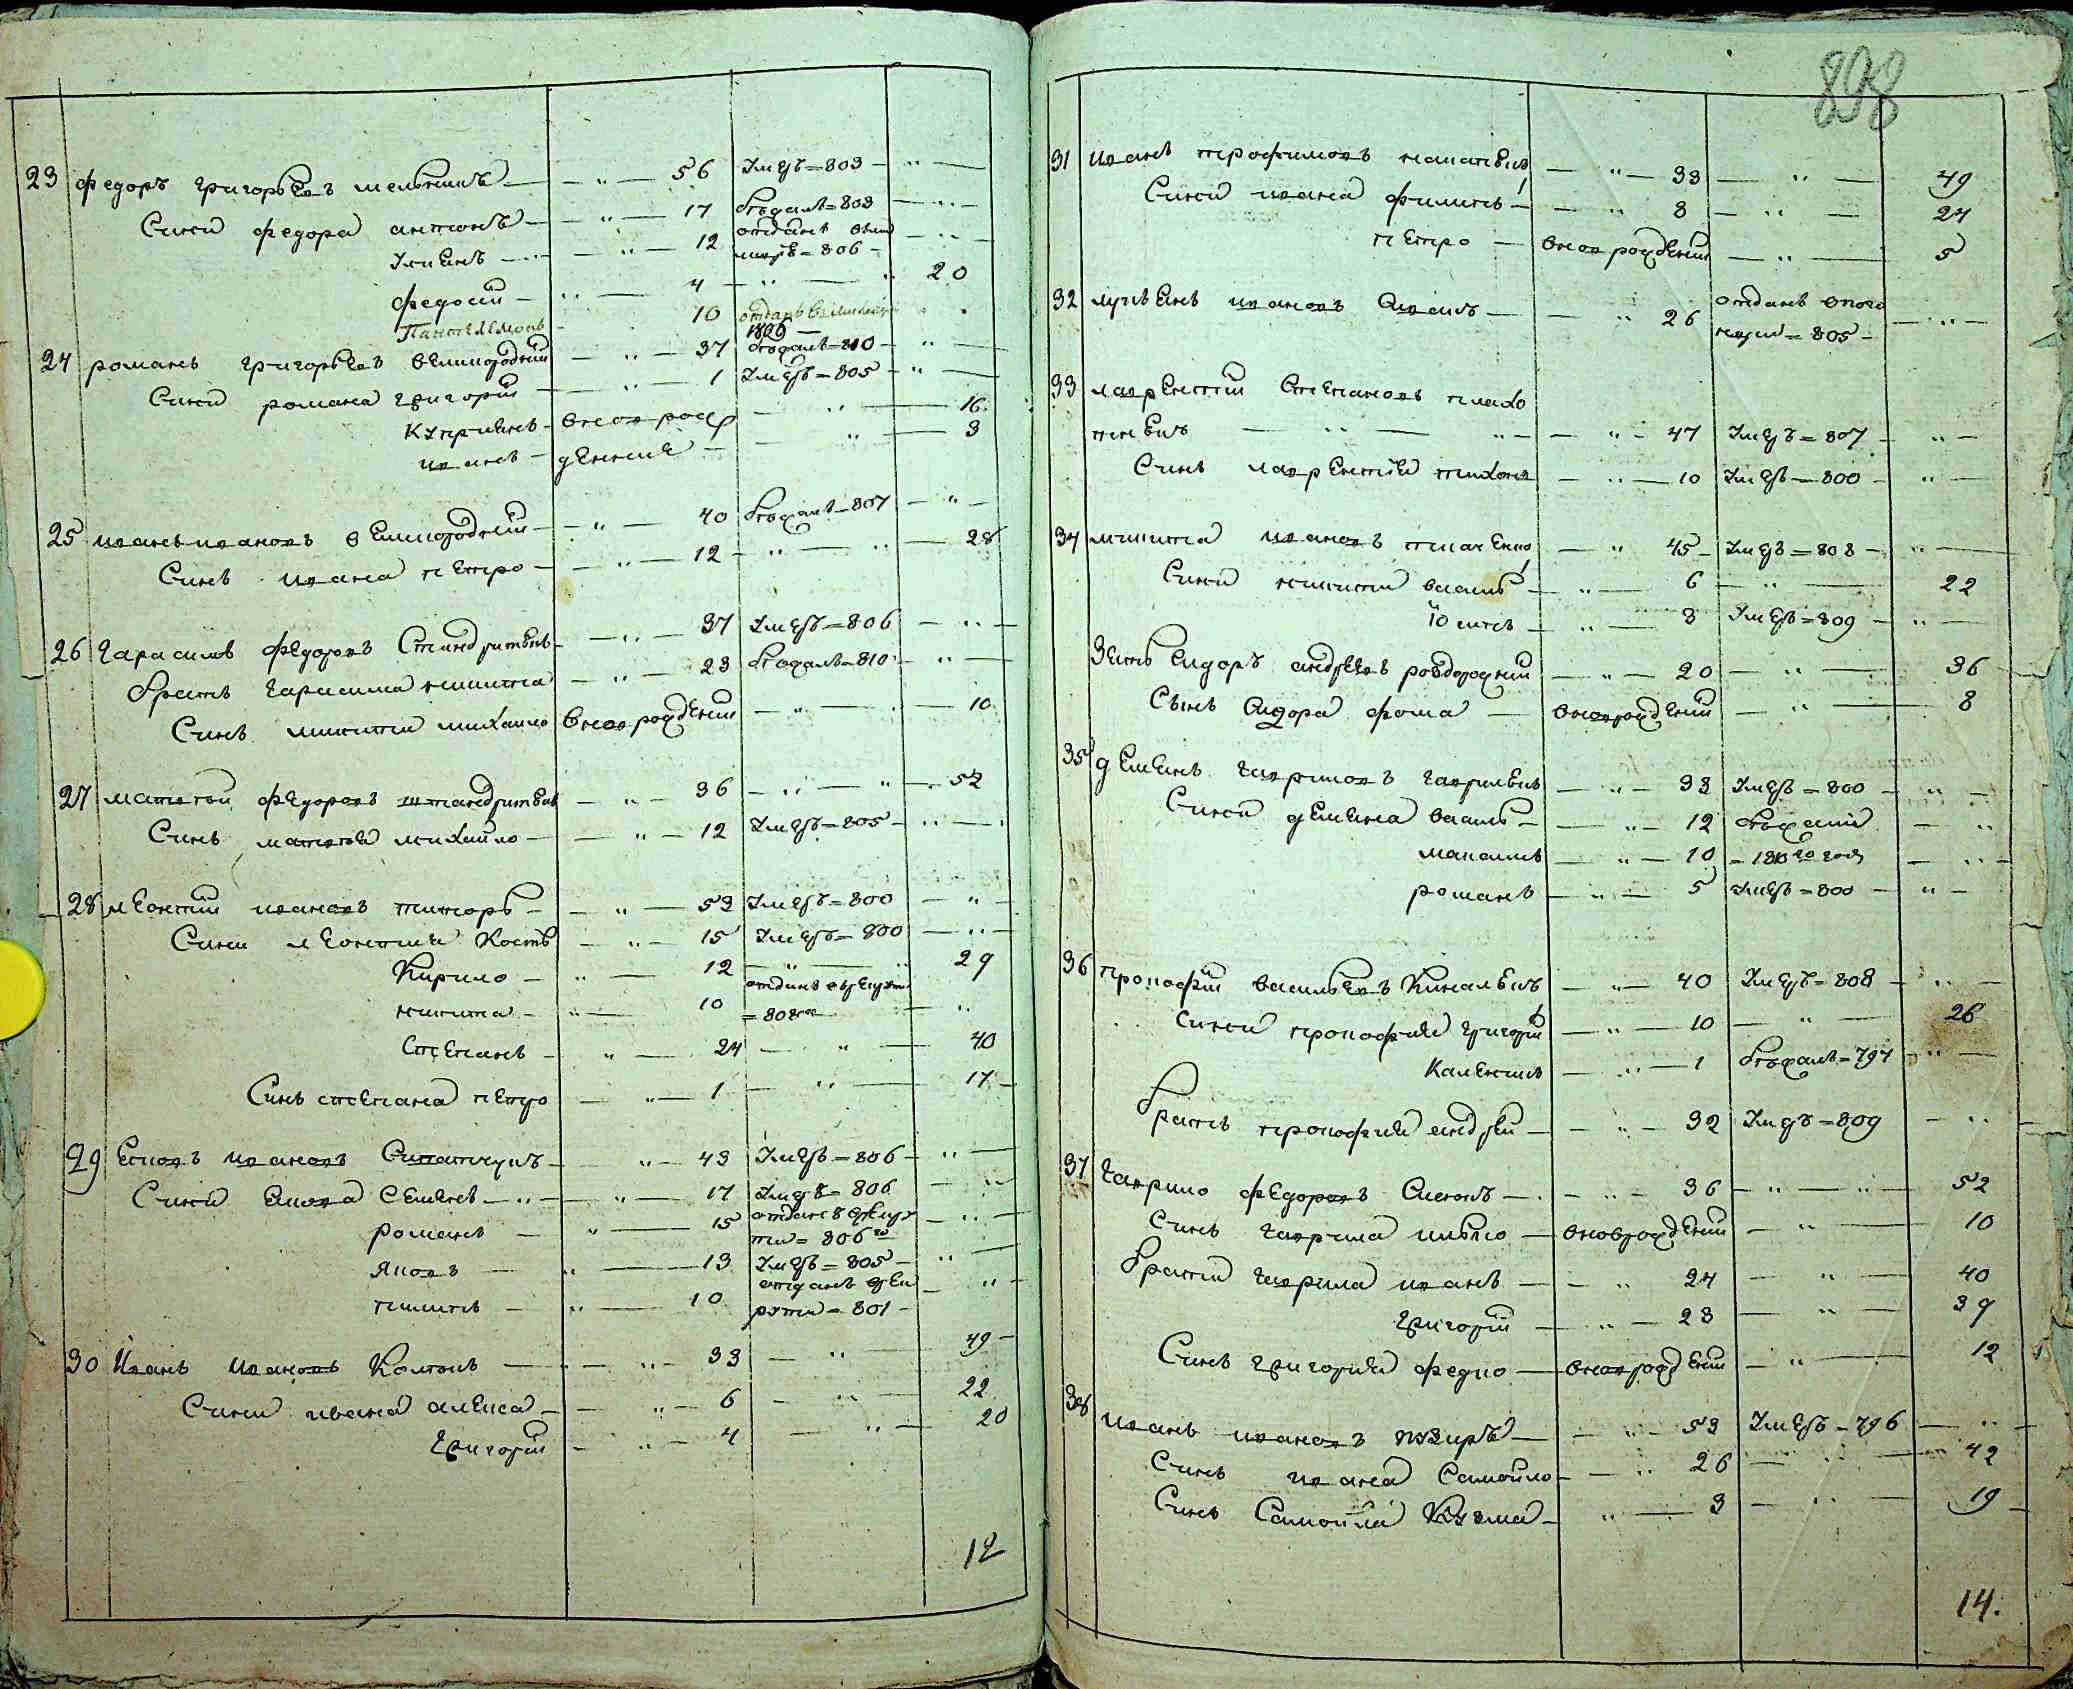 23 Федоръ григорьевъ мельникъ — " — 56 Умеръ = 803 — " —
Сини федора антонъ — " — 17 бѣжалъ = 808 — " —
Уліянъ — " — 12 отданъ вми
лицію = 806 — " —
федосій — " — 4 — " — 20
Пантелемонъ 10 отданъ в милицію
1806 —
24 романъ григорьевъ великородній — " — 37 бѣжалъ = 810 — " —
Сини романа григорій — " — 1 Умеръ = 805 — " —
Купріянъ — вновь рож — " — 16
иванъ — денніе — " — 3
25 иванъ ивановъ великородній — " — 40 бѣжалъ = 807 — " —
Синъ ивана петро — " — 12 — " — 28
26 Гарасимъ федоровъ — " — 37 Умеръ = 806 — " —
братъ гарасима никита — " — 23 бѣжалъ = 810 — " —
Синъ никити михайло вновь рожденій — " — 10
27 матвѣй федоровъ — " — 36 — " — 52
Синъ матвѣя михайло — " — 12 Умеръ = 805 — " —
28 леонтій ивановъ титоръ — " — 53 Умеръ = 800 — " —
Сини леонтия Костъ — " — 15 Умеръ = 800 — " —
Кирило — " — 12 — " — 29
никита — " — 10 отданъ врекрути
= 808го — " —
Степанъ — " — 24 — " — 40
Синъ степана петро — " — 1 — " — 17
29 Ековъ ивановъ — " — 43 Умеръ = 806 — " —
Сини Якова Семенъ — " — 17 Умеръ = 806 — " —
романъ — " — 15 отданъ врекру
ти = 806го — " —
Яковъ — " — 13 Умеръ = 805 — " —
пилипъ — " — 10 отданъ вре
рути = 801 — " —
30 Иванъ Ивановъ Колтокъ — " — 33 — " — 49
Сини ивана алекса — " — 6 — " — 22
григорій — " — 4 — " — 20
12
898
31 иванъ трофимовъ — " — 33 — " — 49
Сини ивана филипъ — " — 8 — " — 24
петро — вновь рожденій — " — 5
32 лукъянъ ивановъ — " — 26 отданъ
= 805 — " —
33 лаврентій Степановъ плахо
тнекъ — " — 47 Умеръ = 807 — " —
Синъ лаврентія тихонъ — " — 10 Умеръ = 800 — " —
34 микита ивановъ ткаченко — " — 45 Умеръ = 808 — " —
Сини никити василь — " — 6 — " — 22
— " — 3 Умеръ = 809 — " —
Зять сидоръ андреевъ — " — 20 — " — 36
Сынъ сидора фома — вновь рожденій — " — 8
35 демянъ гавриловъ — " — 33 Умеръ = 800 — " —
Сини демяна василь — " — 12 бѣжали — " —
максимъ — " — 10 = 1810го года — " —
романъ — " — 5 Умеръ = 800 — " —
36 прокофій васильевъ — " — 40 Умеръ = 808 — " —
Сини прокофия григорій — " — 10 — " — 26
Каленикъ — " — 1 бѣжалъ = 797 — " —
братъ прокофия андрей — " — 32 Умеръ = 809 — " —
37 гаврило федоровъ — " — 36 — " — 52
Синъ гаврила илько — вноврожденій — " — 10
брати гаврила иванъ — " — 24 — " — 40
григорій — " — 23 — " — 39
Синъ григория федко — вновь рожденій — " — 12
38 иванъ ивановъ пузиръ — " — 53 Умеръ = 796 — " —
Синъ ивана Самойло — " — 26 — " — 42
Синъ Самойла Кузма — " — 3 — " — 19
14.